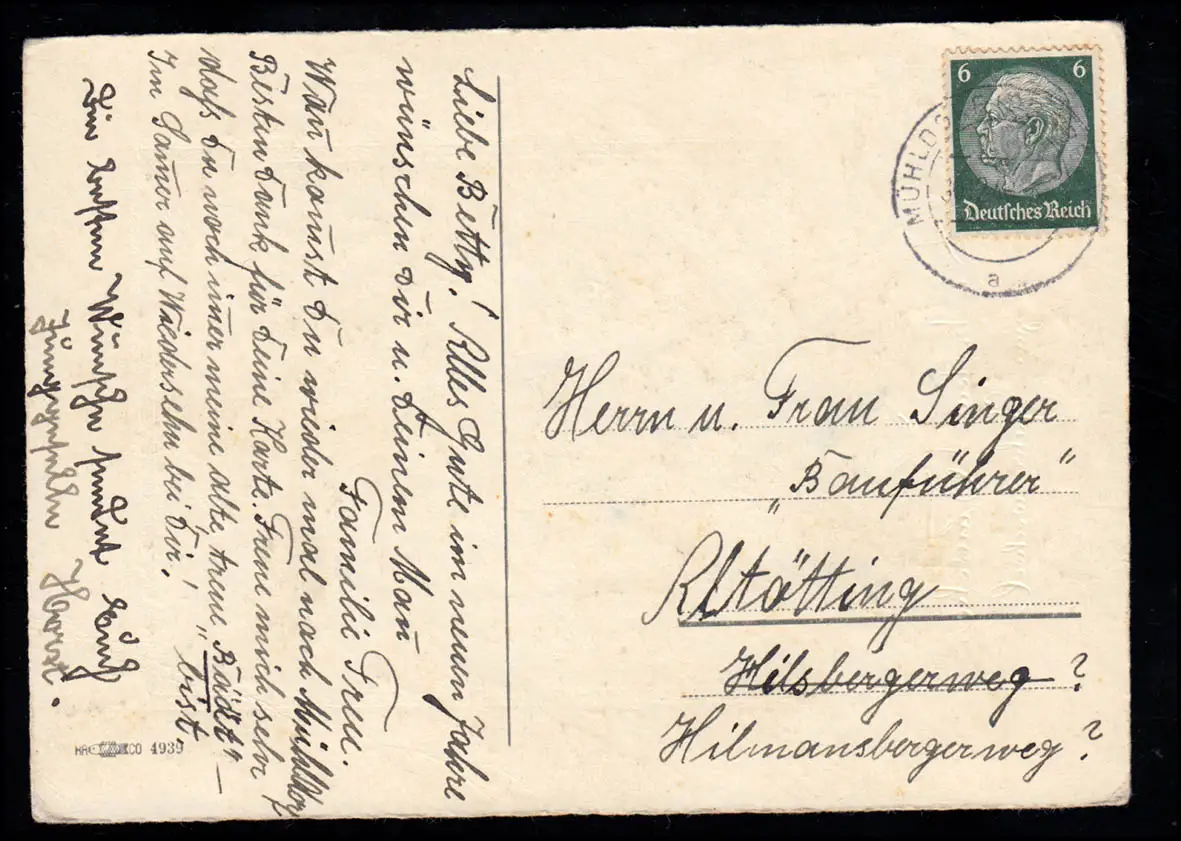 Liebe Betty! Alles Gute im neuen Jahre
wünschen Dir u. Deinem Mañ
Familie Treu.
Wañ kañst Du wieder mal nach Mühldorf
Besten Dank für Deine Karte. Freue mich sehr
daß Du noch im̄er meine alte treue „Bädt" –
bist.
Im Som̄er auf Wiedersehn bei Dir!
Die besten Wünsche sendet Euch
HACO 4939
6 6
Deutsches Reich
MÜHLDO
a
Herrn u. Frau Singer
„Bauführer"
Altötting
Hilsbergerweg ?
Hilmansbergerweg ?